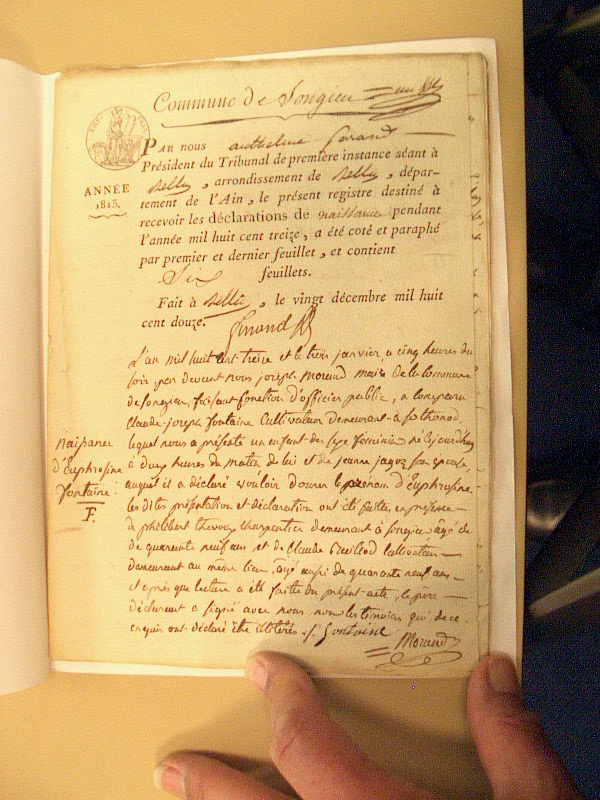 Commune de Songieu
PAR nous anthelme Girand
Président du Tribunal de première instance séant à
Belley, arrondissement de Belley, dépar-
tement de l'Ain, le présent registre destiné à
recevoir les déclarations de naissance pendant
l'année mil huit cent treize, a été coté et paraphé
par premier et dernier feuillet, et contient
Six feuillets.
Fait à Belley, le vingt décembre mil huit
cent douze.
Girand
ANNÉE
1813.
L'an mil huit cent treize et le trois janvier, a cinq heures du
soir par devant nous joseph Morand maire de la Commune
de songieu, faisant fonction d'officier public, a comparu
Claude joseph fontaine Cultivateur demeurant a sothonod,
lequel nous a présenté un enfant du sexe féminin né le jourd'hui
a deux heures du matin de lui et de jeanne son épouse,
auquel il a déclaré vouloir donner le prénom d'Euphrosine.
les dites présentation et déclaration ont été faites en présence
de philibert Charpentier demeurant à songieu, âgé de
de quarante neuf ans, et de Claude Cultivateur
demeurant au meme lieu, âgé aussi de quarante neuf ans
et après que lecture a été faite du présent acte, le père
déclarant a signé avec nous, non les témoins qui de ce
enquis ont déclaré être illétérés. J. fontaine
Morand
naissance
d'Euphrosine
fontaine :
F.